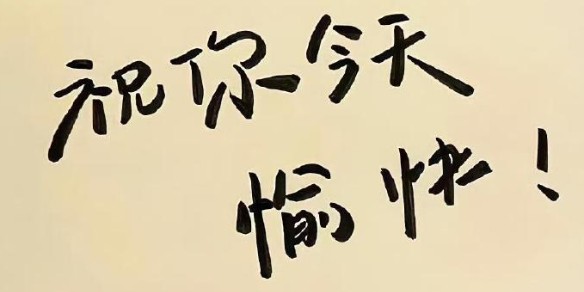 祝你今天
愉快！